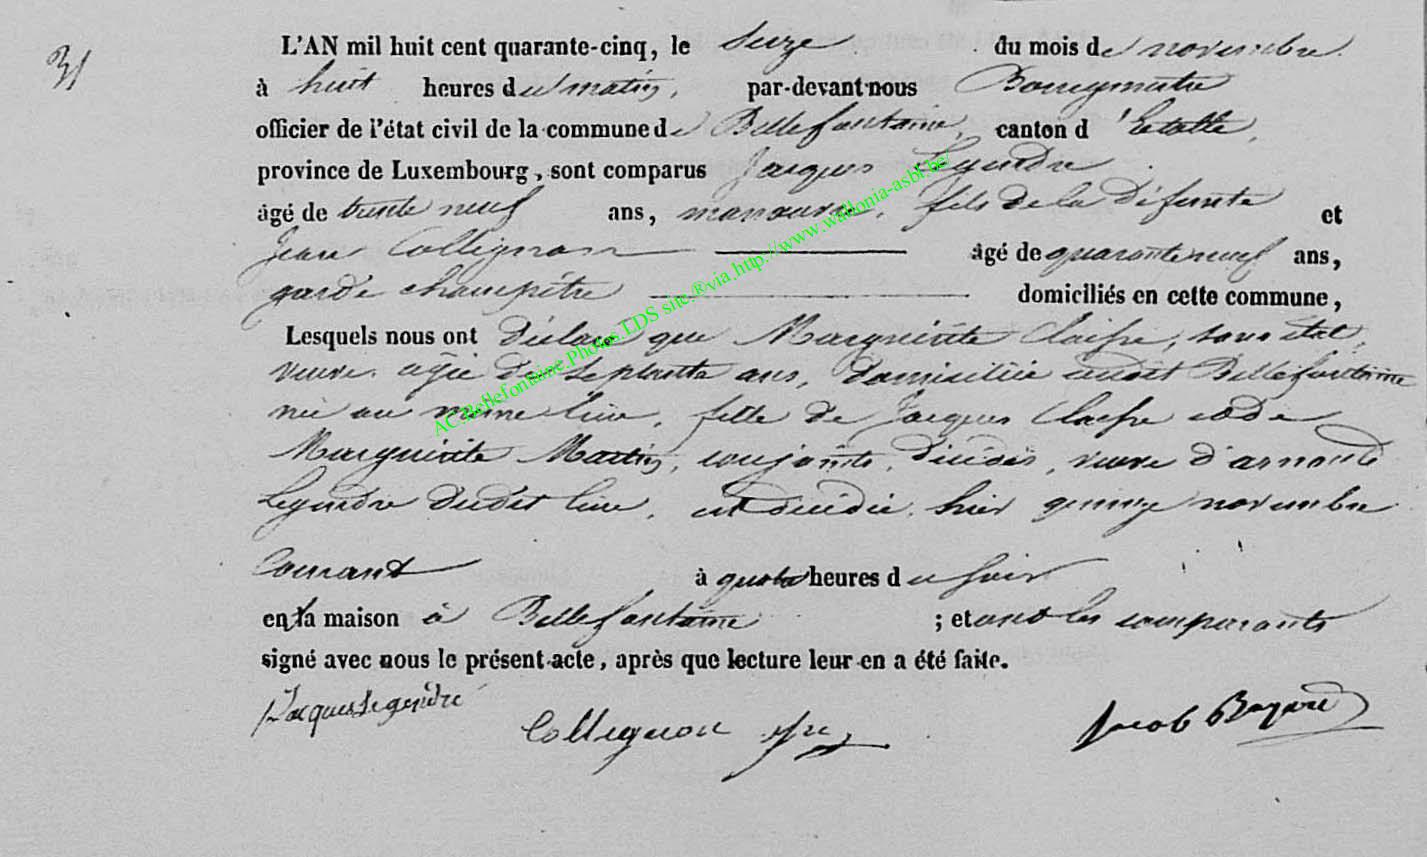 31
L'AN mil huit cent quarante-cinq, le Seize du mois de novembre
à huit heures du matin, par-devant nous Bourgmestre
officier de l'état civil de la commune de Bellefontaine, canton d'Etalle,
province de Luxembourg, sont comparus Jacques Legendre
âgé de trente neuf ans, manœuvre, fils de la Défunte et
Jean Collignon âgé de quarante neuf ans,
garde champêtre domiciliés en cette commune,
Lesquels nous ont Déclaré que Marguerite Claisse, sans état,
veuve, agée de Septante ans, domiciliée audit Bellefontaine
née au même lieu, fille de Jacques Claisse et de
Marguerite Martin, conjoints, Décédés, veuve d'arnould
Legendre dudit lieu, est décédée, hier quinze novembre
Courant à quatre heures du soir
en sa maison à Bellefontaine ; et ont les comparants
signé avec nous le présent acte, après que lecture leur en a été faite.
Jacques Legendre
Collignon Jacob Bayard
AC.Bellefontaine.Photos LDS site.®via.http://www.wallonia-asbl.be/